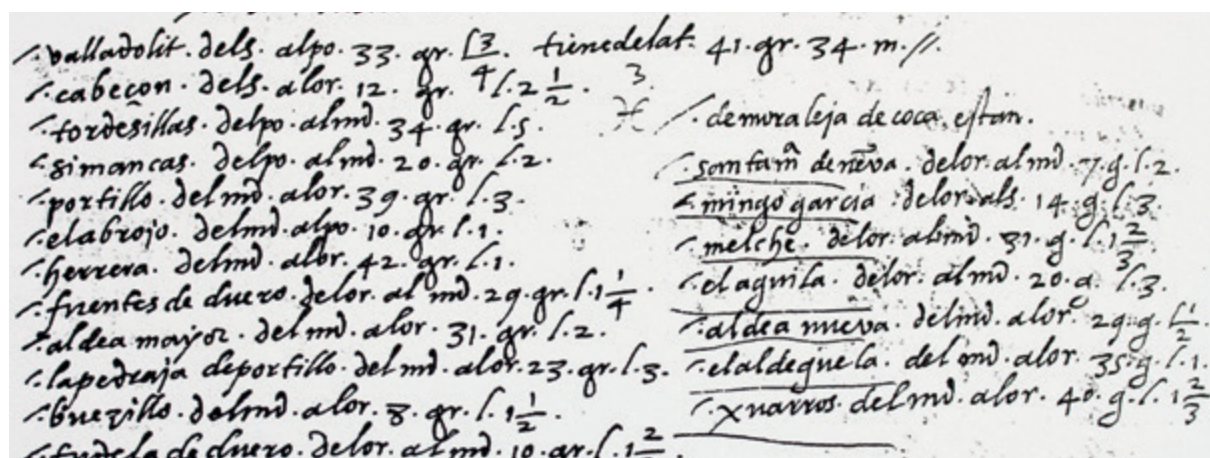 valladolit. dels. alpo. 33. gr. l 3/4. tienedelat. 41. gr. 34. m. //.
cabeçon. dels. alor. 12. gr. l. 2 1/2.
tordesillas. delpo. almd. 34. gr. l. 5.
simancas. delpo. almd. 20. gr. l. 2.
portillo. delmd. alor. 39. gr. l. 3.
elabrojo. delmd. alpo. 10. gr. l. 1.
herrera. delmd. alor. 42. gr. l. 1.
fuentes de duero. delor. al md. 29. gr. l. 1 1/4.
aldea mayor. del md. alor. 31. gr. l. 2.
lapedraja deportillo. del md. alor. 23. gr. l. 3.
buezillo. delmd. alor. 8. gr. l. 1 1/2.
tudela de duero. delor. al md. 10. gr. l. 1 2
demuraleja de coca. estan.
santam̃ denēva. delor. almd. 7. g. l. 2.
mingo garcia. delor. als. 14. g. l. 3.
melche. delor. almd. 31. g. l. 1 2/3.
elaguila. delor. almd. 20. g. l. 3.
aldea nueva. delmd. alor. 29. g. l 1/2.
elaldeguela. del md. alor. 35. g. l. 1.
xuarros. del md. alor. 40. g. l. 1 2/3